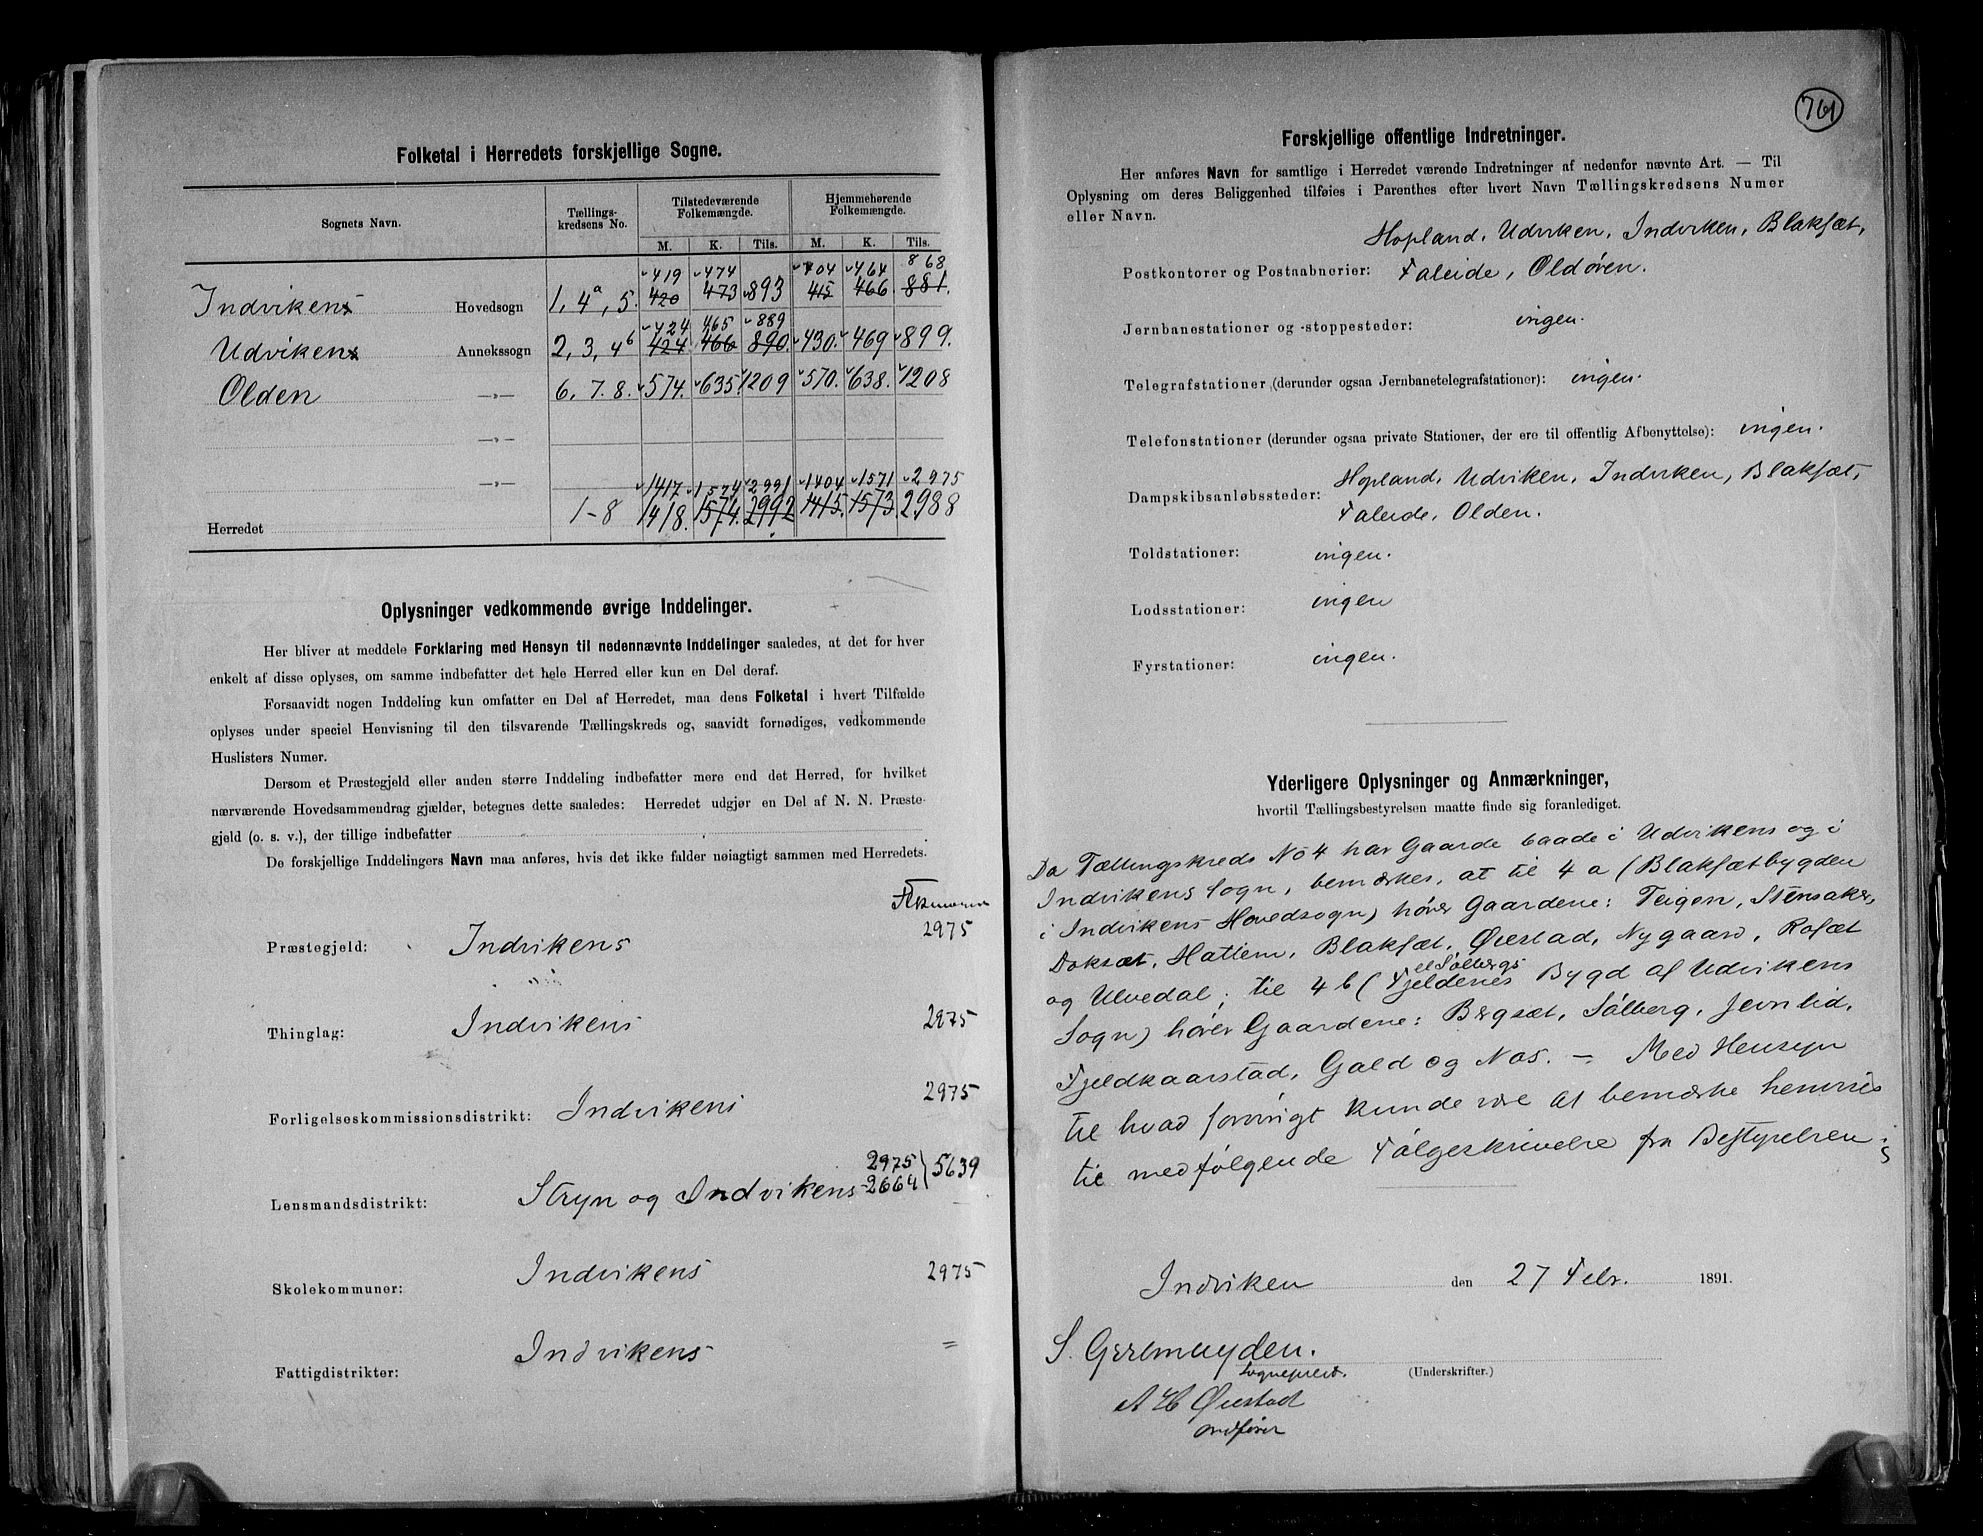 Folketal i Herredets forskjellige Sogne.
Sognets Navn. Tællings-kredsens No. Tilstedeværende Folkemængde. Hjemmehørende Folkemængde.
M. K. Tils. M. K. Tils.
419 474 404 464 868
Indvikens Hovedsogn 1, 4a, 5. 420 473 893 415 466 881.
424 465 889
Udvikens Annekssogn 2, 3, 4b 424 466 890. 430. 469 899.
Olden —„— 6. 7. 8. 574. 635. 1209 570. 638. 1208
—„—
—„—
1417 1574 2991 1404 1571 2975
Herredet 1-8 1418. 1574. 2992. 1415. 1573 2988
Oplysninger vedkommende øvrige Inddelinger.
Her bliver at meddele Forklaring med Hensyn til nedennævnte Inddelinger saaledes, at det for hver
enkelt af disse oplyses, om samme indbefatter det hele Herred eller kun en Del deraf.
Forsaavidt nogen Inddeling kun omfatter en Del af Herredet, maa dens Folketal i hvert Tilfælde
oplyses under speciel Henvisning til den tilsvarende Tællingskreds og, saavidt fornødiges, vedkommende
Huslisters Numer.
Dersom et Præstegjeld eller anden større Inddeling indbefatter mere end det Herred, for hvilket
nærværende Hovedsammendrag gjælder, betegnes dette saaledes: Herredet udgjør en Del af N. N. Præste-
gjeld (o. s. v.), der tillige indbefatter
De forskjellige Inddelingers Navn maa anføres, hvis det ikke falder nøiagtigt sammen med Herredets.
Præstegjeld: Indvikens 2975
Thinglag: Indvikens 2975
Forligelseskommissionsdistrikt: Indvikens 2975
2975
Lensmandsdistrikt: Stryn og Indvikens 2664 } 5639
Skolekommuner: Indvikens 2975
Fattigdistrikter: Indvikens =
761
Forskjellige offentlige Indretninger.
Her anføres Navn for samtlige i Herredet værende Indretninger af nedenfor nævnte Art. — Til
Oplysning om deres Beliggenhed tilføies i Parenthes efter hvert Navn Tællingskredsens Numer
eller Navn.
Hopland, Udviken, Indviken, Blaksæt,
Postkontorer og Postaabnerier: Faleide, Oldøren.
Jernbanestationer og -stoppesteder: ingen.
Telegrafstationer (derunder ogsaa Jernbanetelegrafstationer): ingen.
Telefonstationer (derunder ogsaa private Stationer, der ere til offentlig Afbenyttelse): ingen.
Hopland, Udviken, Indviken, Blaksæt,
Dampskibsanløbssteder:
Faleide, Olden.
Toldstationer: ingen.
Lodsstationer: ingen
Fyrstationer: ingen.
Yderligere Oplysninger og Anmærkninger,
hvortil Tællingsbestyrelsen maatte finde sig foranlediget.
Da Tællingskreds No 4 har Gaarde baade i Udvikens og i
Indvikens Sogn, bemærkes, at til 4 a (Blaksætbygden
i Indvikens Hovedsogn) hører Gaardene: Teigen, Stensaker,
Doksæt, Hattem, Blaksæt, Ørestad, Nygaard, Rosæt
el Sølbergs
og Ulvedal; til 4 b (Fjeldenes Bygd af Udvikens
Sogn) hører Gaardene: Bergsæt, Sølberg, Jevnlid,
Fjeldkaarstad, Gald og Nos. — Med Hensyn
til hvad forøvrigt kunde være at bemærke henvises
til medfølgende Følgeskrivelse fra Bestyrelsen.
Indviken den 27 Febr. 1891.
S. Geelmuyden.
Sognepræst. (Underskrifter.)
A H Ørestad
ordfører